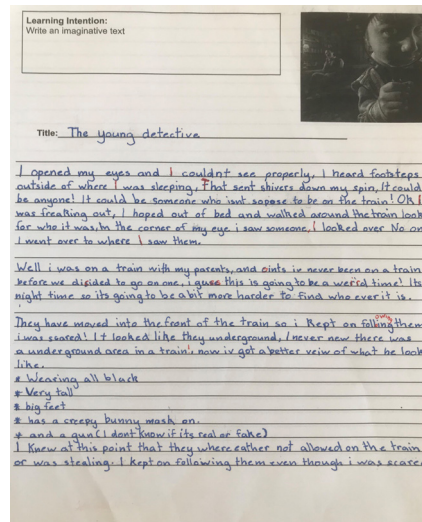 Learning Intention:
Write an imaginative text
Title: The young detective
I opened my eyes and I couldnt see properly, I heard footsteps
outside of where I was sleeping, That sent shivers down my spin, It could
be anyone! It could be someone who isnt sopose to be on the train! Ok I
was freaking out, I hoped out of bed and walked around the train look
for who it was, In the corner of my eye i saw someone, I looked over No on
I went over to where I saw them.
Well i was on a train with my parents, and iv never been on a train
before we disided to go on one, i guse this is going to be a weird time! Its
night time so its going to be abit more harder to find who ever it is.
They have moved into the front of the train so i Kept on following them
i was scared! It looked like they underground, I never new there was
a underground area in a train, now iv got a better veiw of what he look
like.
* Wearing all black
* Very tall
* big feet
* has a creepy bunny mask on.
* and a gun (I dont know if its real or fake)
I Knew at this point that they where eather not allowed on the train
or was stealing. I Kept on following them even though i was scare